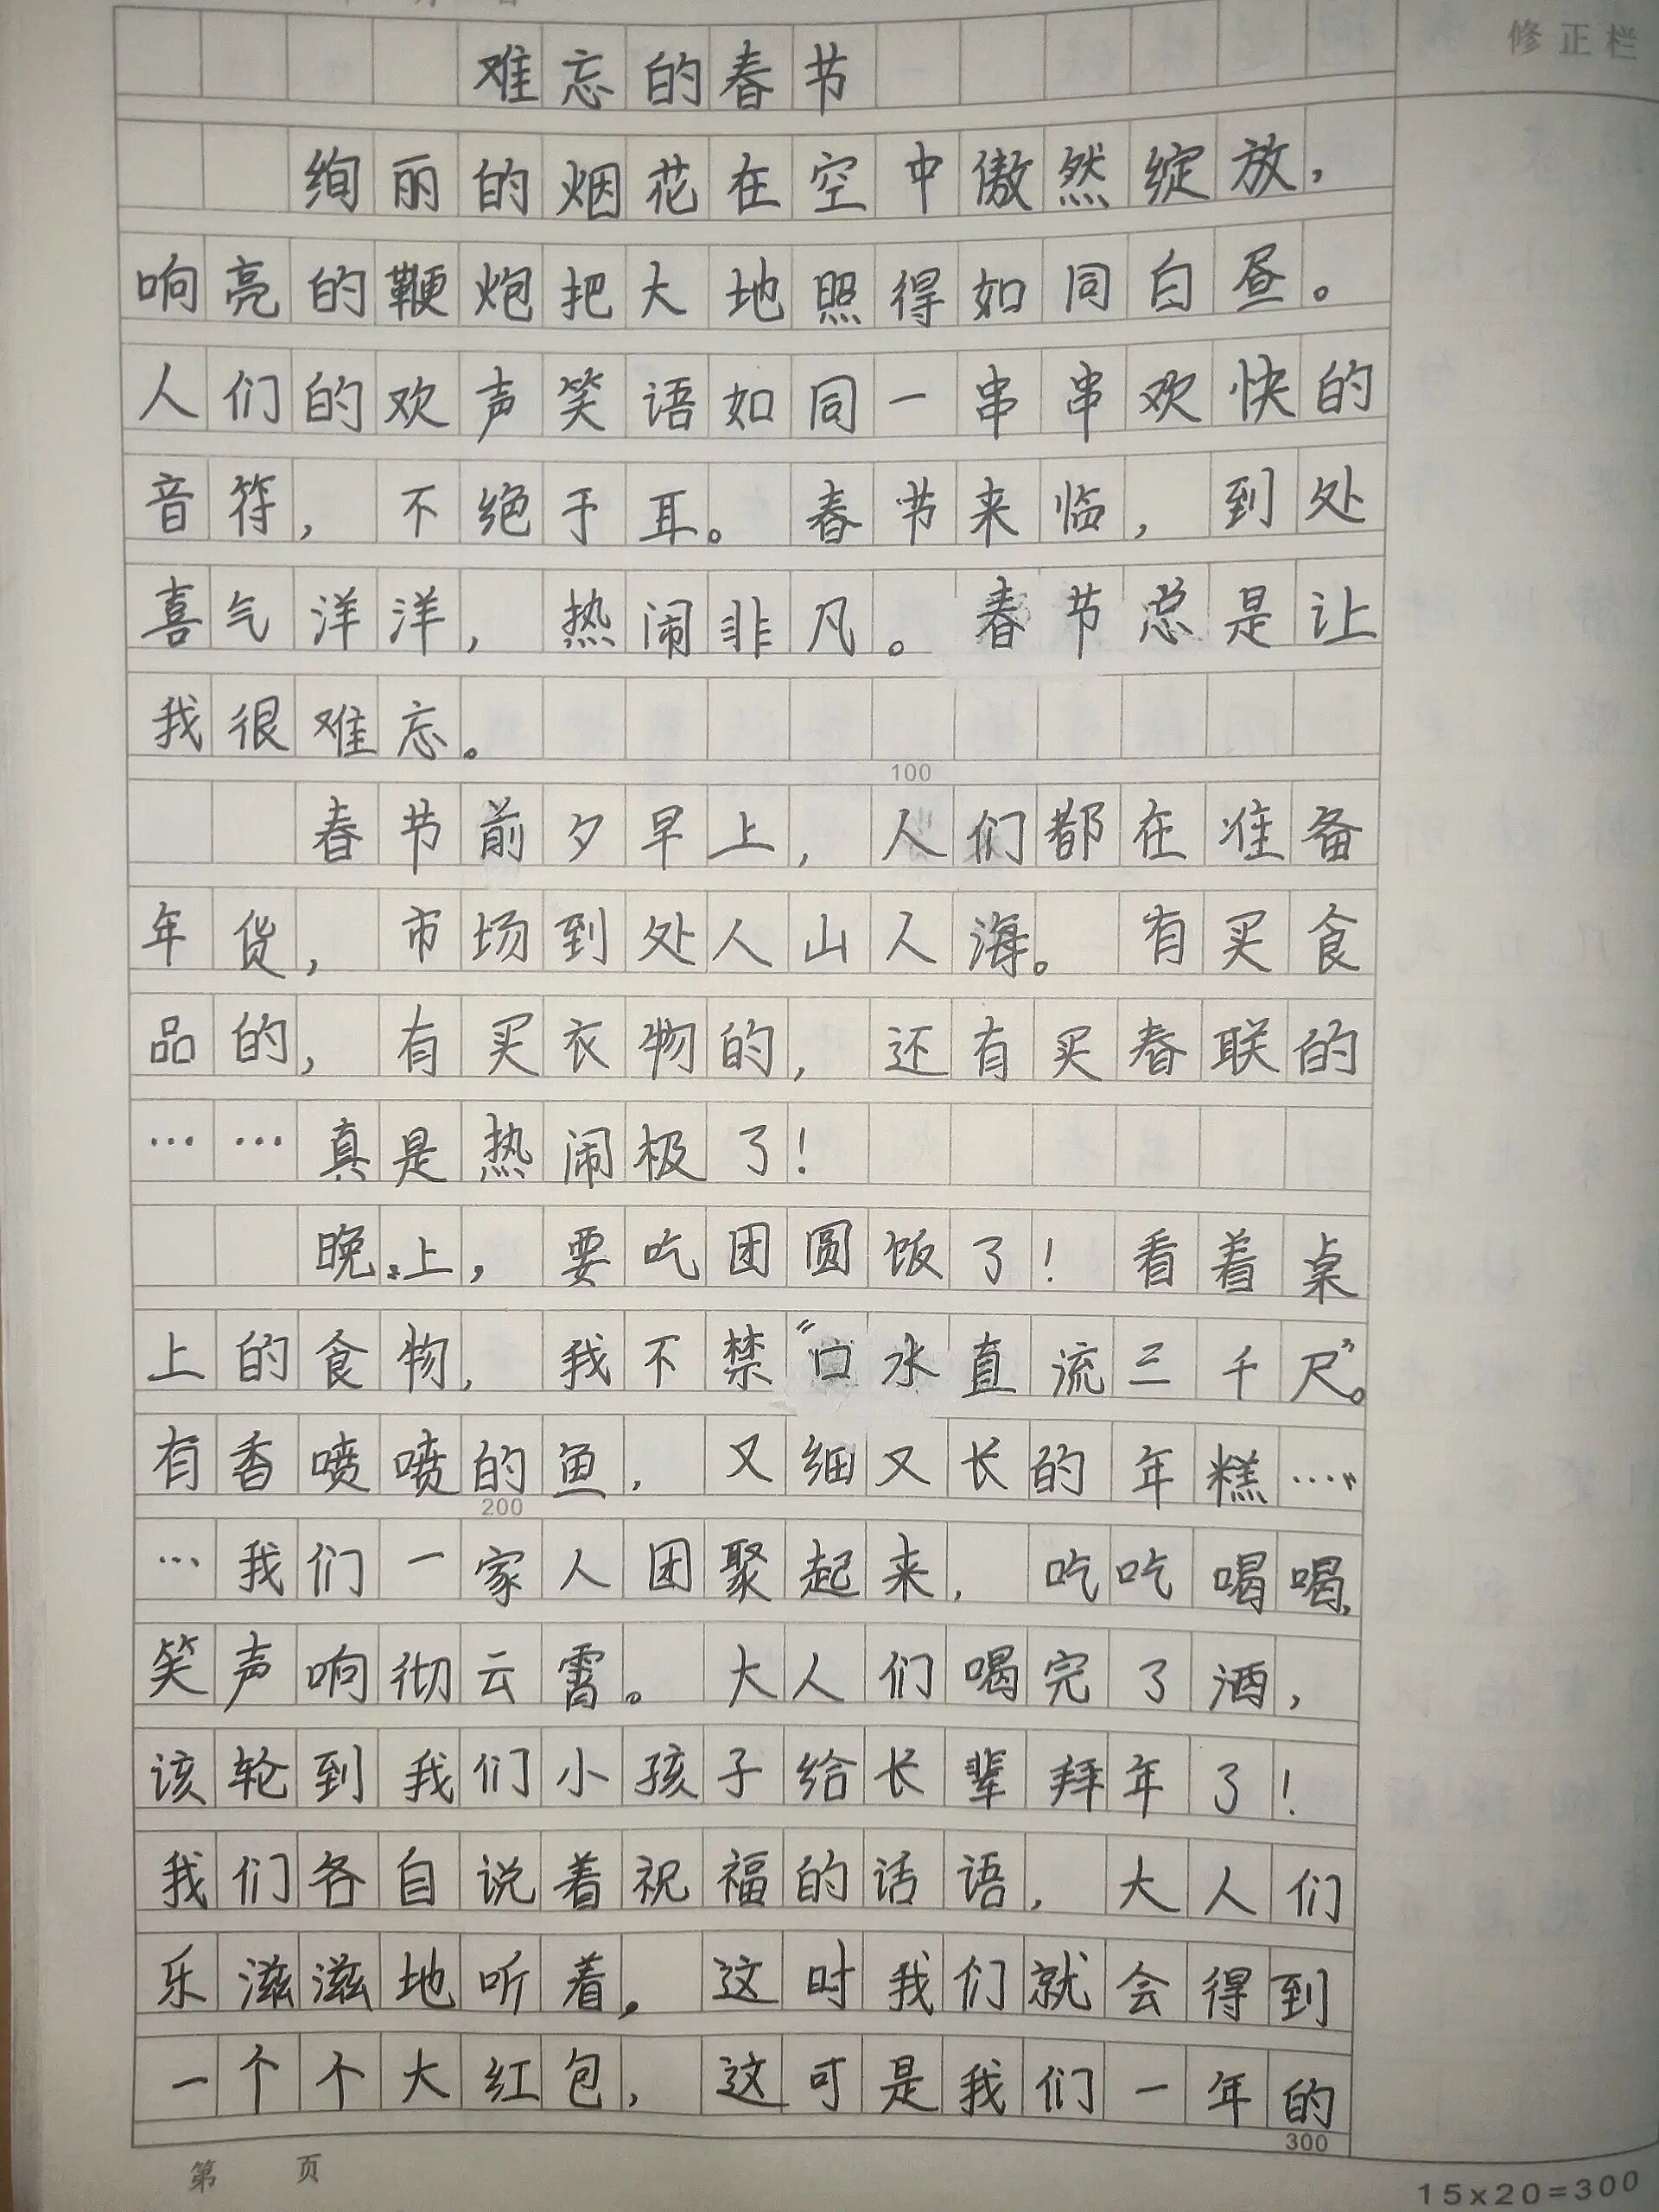 修正栏
难忘的春节
绚丽的烟花在空中傲然绽放，
响亮的鞭炮把大地照得如同白昼。
人们的欢声笑语如同一串串欢快的
音符，不绝于耳。春节来临，到处
喜气洋洋，热闹非凡。春节总是让
我很难忘。
100
春节前夕早上，人们都在准备
年货，市场到处人山人海。有买食
品的，有买衣物的，还有买春联的
……真是热闹极了！
晚上，要吃团圆饭了！看着桌
上的食物，我不禁“口水直流三千尺”。
有香喷喷的鱼，又细又长的年糕…
200
…我们一家人团聚起来，吃吃喝喝，
笑声响彻云霄。大人们喝完了酒，
该轮到我们小孩子给长辈拜年了！
我们各自说着祝福的话语，大人们
乐滋滋地听着。这时我们就会得到
一个个大红包，这可是我们一年的
300
第 页
15×20=300